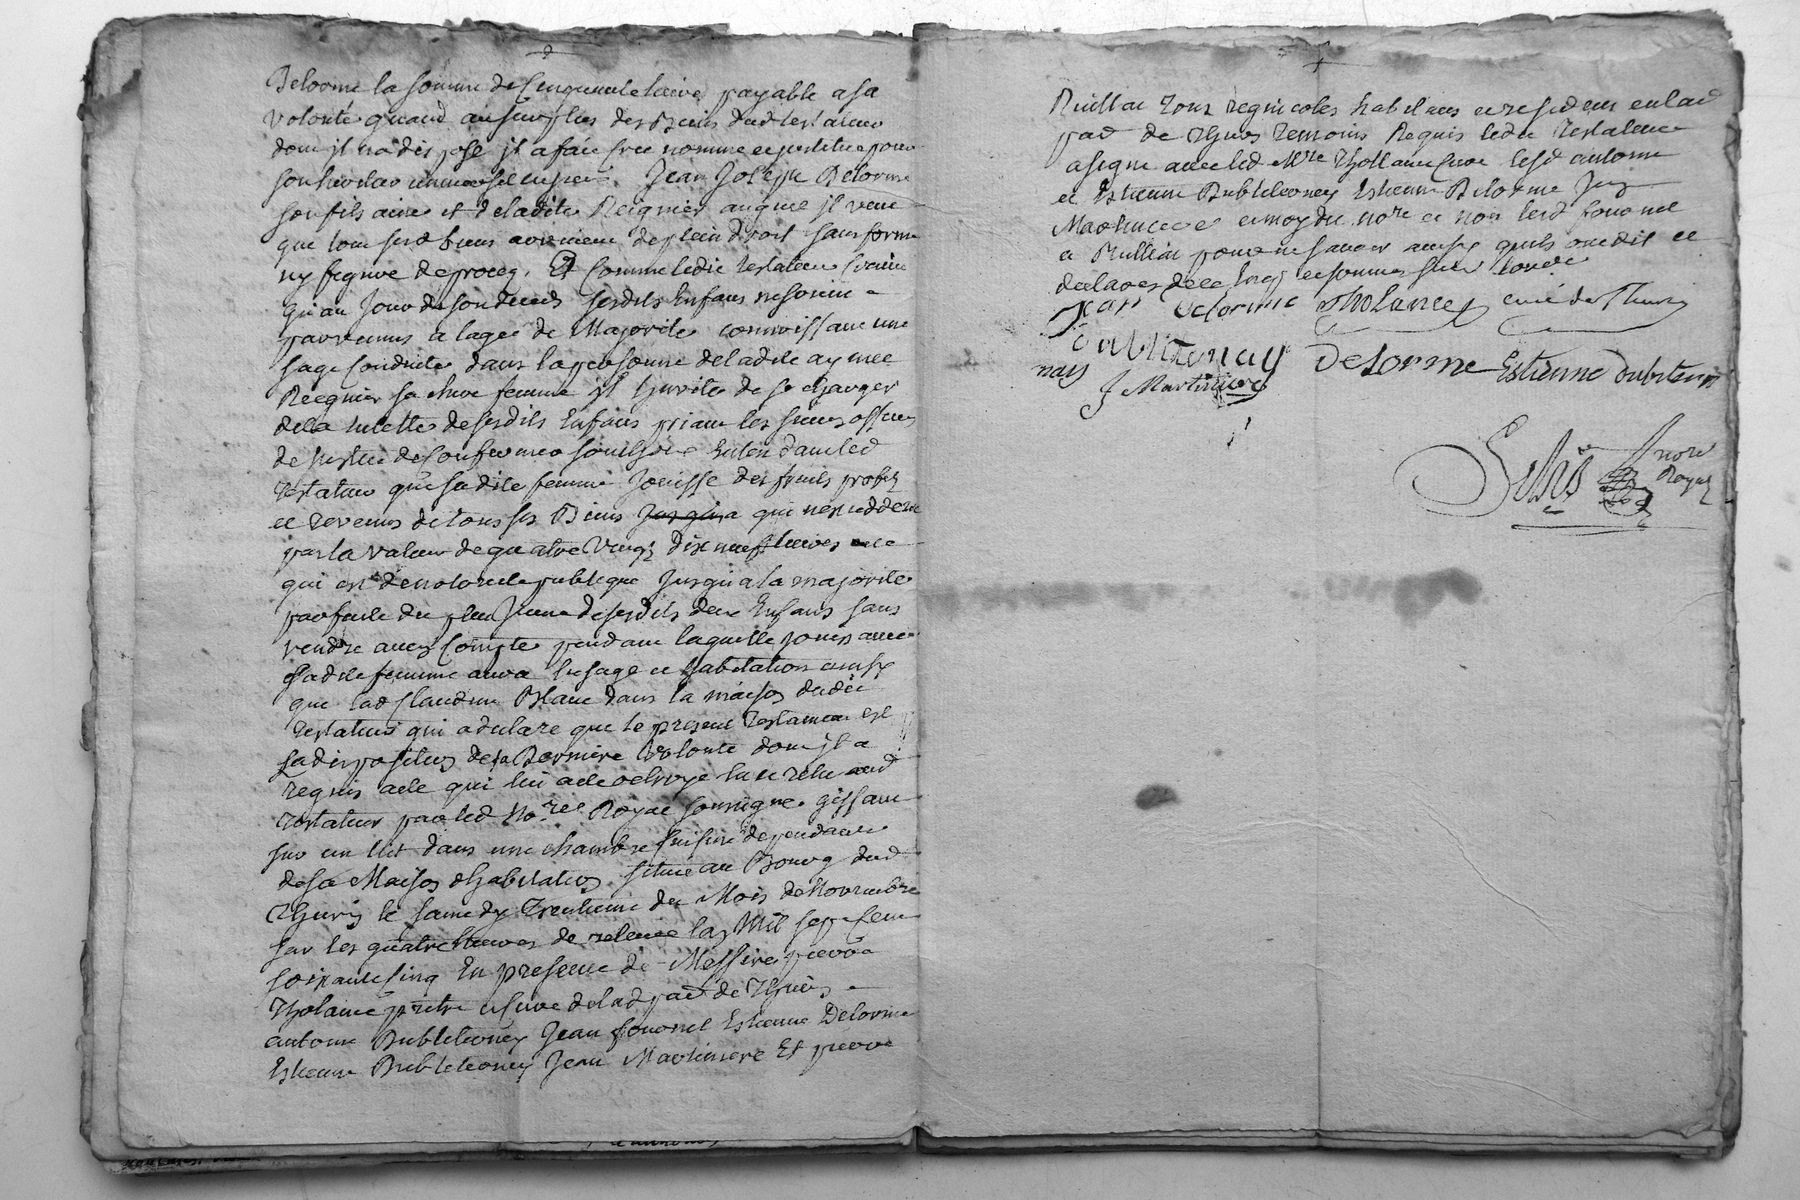 Delorme la somme de Cinquante livres payable a sa
volonté quand au surplus des Biens dud testateur
dont jl na dispose jl a fait Cree nomme et jnstitue pour
son heritier universel Jean Joseph Delorme
son fils aine et de ladite Reignier auquel jl veut
que tous sesd biens aviennent de plein droit sans forme
ny figure de proces. Et Comme ledit testateur Craint
qu'au Jour de son deceds sesdits Enfans ne soient
parvenus a lage de Majorité connoissant une
sage Conduite dans la personne de ladite aymee
Reignier sa chere femme jl Linvite de se charger
dela tutelle de sesdits Enfans priant les sieurs officiers
de justice de Confirmer Entendant led
testateur que sadite femme Jouisse des fruits profits
et revenus de tous ses Biens qui nexcedderont
pas la valeur de quatre vingt dix neuf livres
qui est de notoriete publique Jusqu'a la majorité
parfaite du plus Jeune de sesdits deux Enfans sans
rendre aucun Compte pendant laquelle jouissance
sadite femme aura lusage et habitation ainsy
que lad Claudine Blanc dans la maison dudit
testateur qui a declare que le present testament est
sa disposition de sa Derniere volonté dont jl a
requis acte qui lui a ete octroye lu et relu aud
testateur par led No.re Royal soussigne gissant
sur un lit dans une chambre Cuisine dependante
de sa Maison dhabitation situee au Bourg dud
Thurins le samedy trentieme du Mois de Novembre
sur les quatre heures de relevee lan Mil sept Cent
soixante Cinq En presence de Messire pierre
Tholance prêtre et Cure de lad parr de Thurins
antoine Dubiternay Jean fouonel Estienne Delorme
Estienne Dubiternay Jean Martiniere Et pierre
Rulliat tous regnicoles habitans et residens en lad
parr de Thurins temoins Requis ledit testateur
a signe avec led M.re Thollance Cure lesd antoine
et Estienne Dubiternay Estienne Delorme Jean
Martiniere et moydit no.re et non lesd fouonel
et Rulliat pour ne savoir ainsy quils ont dit et
declarer de ce Enquis et sommes
jean delorme tholance curé de Thurins
dubiternay Delorme Estienne dubiternay
J Martiniere
nore
Royal